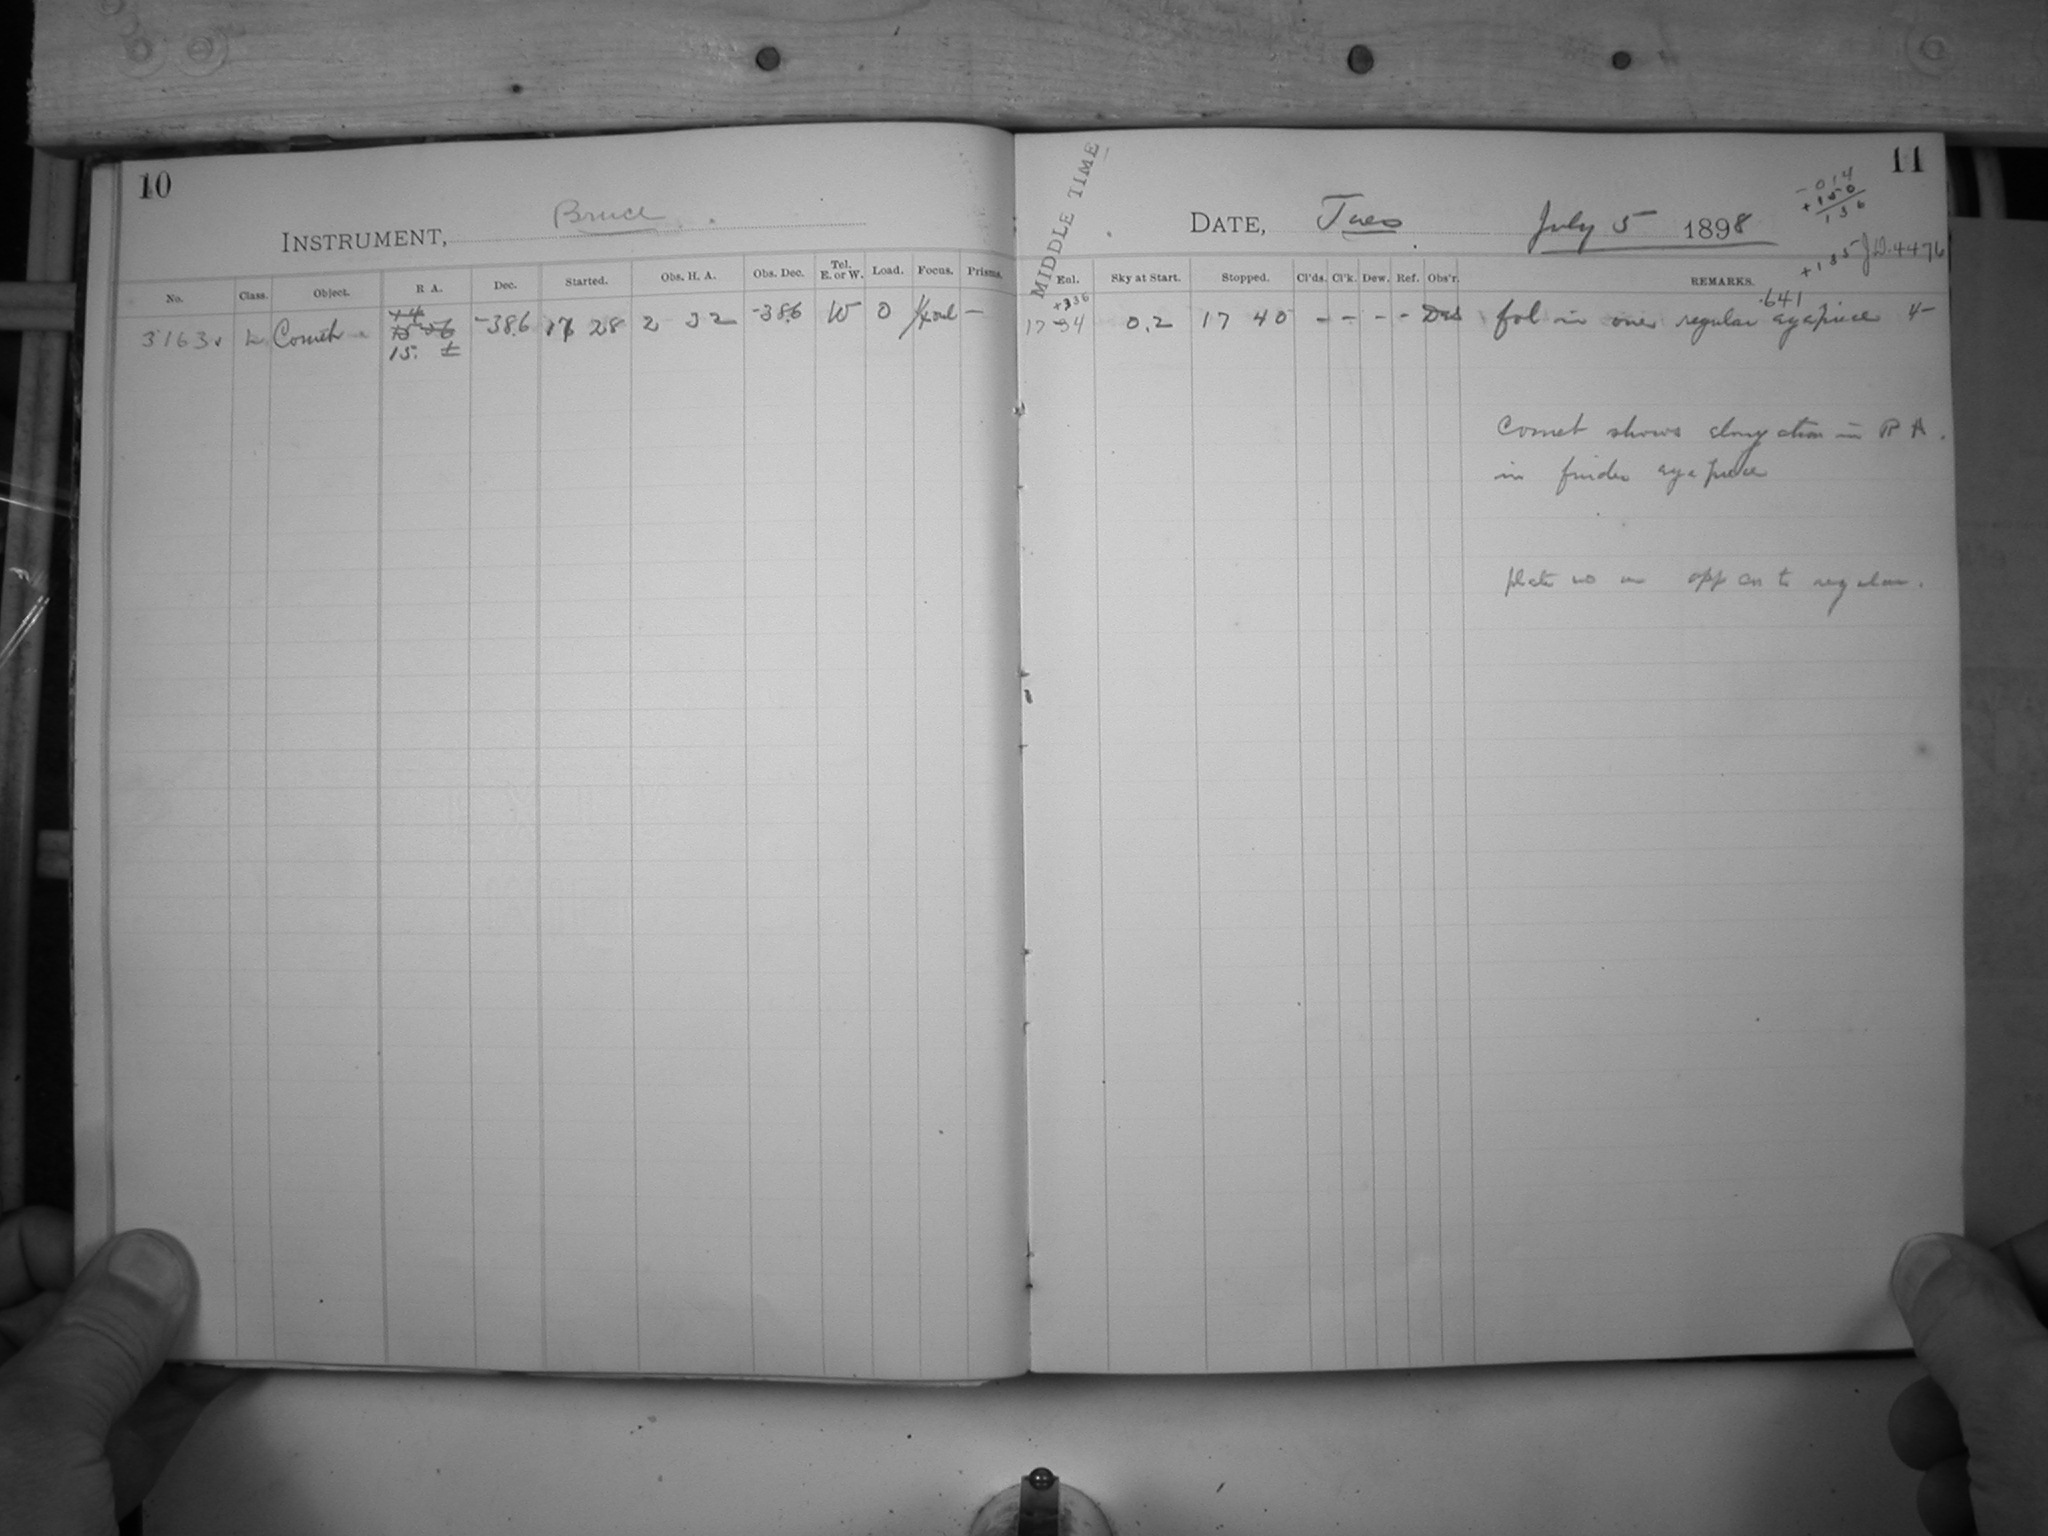 10
INSTRUMENT, Bruce
No. Class. Object. R A. Dec. Started. Obs. H. A. Obs. Dec. Tel. E. or W. Load. Focus. Prisms.
3163 L Comet 15. ± -38.6 17 28 2 32 -38.6 W 0 –
MIDDLE TIME
11
DATE, Tues July 5 1898
-014
+150
136
+135 J.D. 4476
Eul. Sky at Start. Stopped. Cl'ds. Cl'k. Dew. Ref. Obs'r. REMARKS.
+336
.641
17 34 0.2 17 40 – – – – fol in one regular eyepiece 4–
Comet shows elongation in R A.
in finder eyepiece
plate no on opp on to regular.